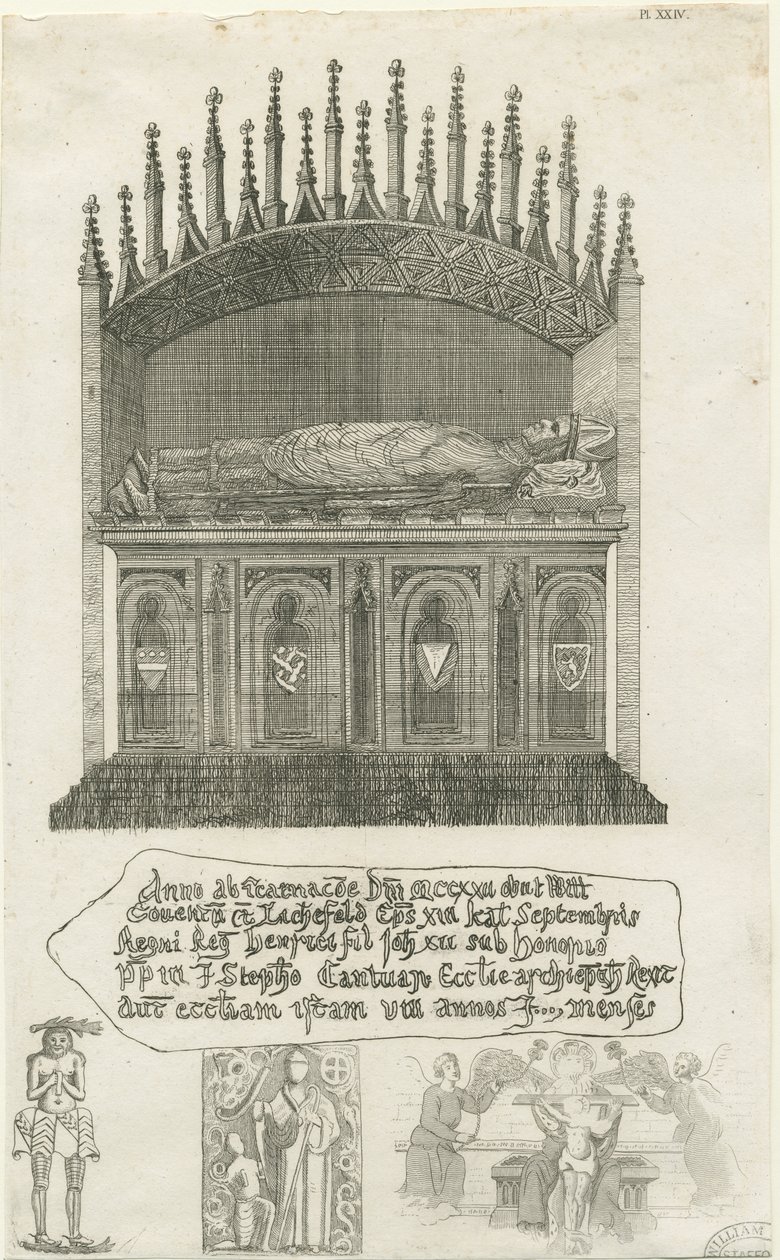 Pl. XXIV.
Anno ab Dñi MCCXXII obut Witt
Coventñ Lichefeld Eps XIII kał Septembris
Regni Reg Henrici fil Joh XII sub Honorio
pp̄ III Stepho Cantuar Ecctie archiepth Rexit
aut ecctiam istam VIII annos menses
WILLIAM